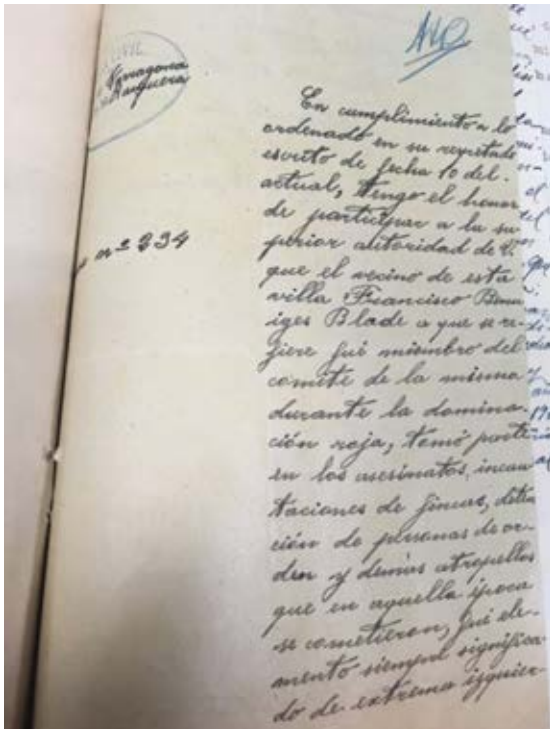 CIVIL
Tarragona
440
En cumplimiento a lo
ordenado en su respetado
escrito de fecha 10 del
actual, tengo el honor
de participar a la su
perior autoridad de V.
nº 234
que el vecino de esta
villa Francisco Bena
iges Blade a que se re-
fiere fué miembro del
comité de la misma
durante la domina-
ción roja, tomó parte
en los asesinatos, incau
taciones de fincas, deten
ción de personas de or-
den y demás atropellos
que en aquella época
se cometieron, fué ele-
mento siempre significa-
do de extrema izquier-